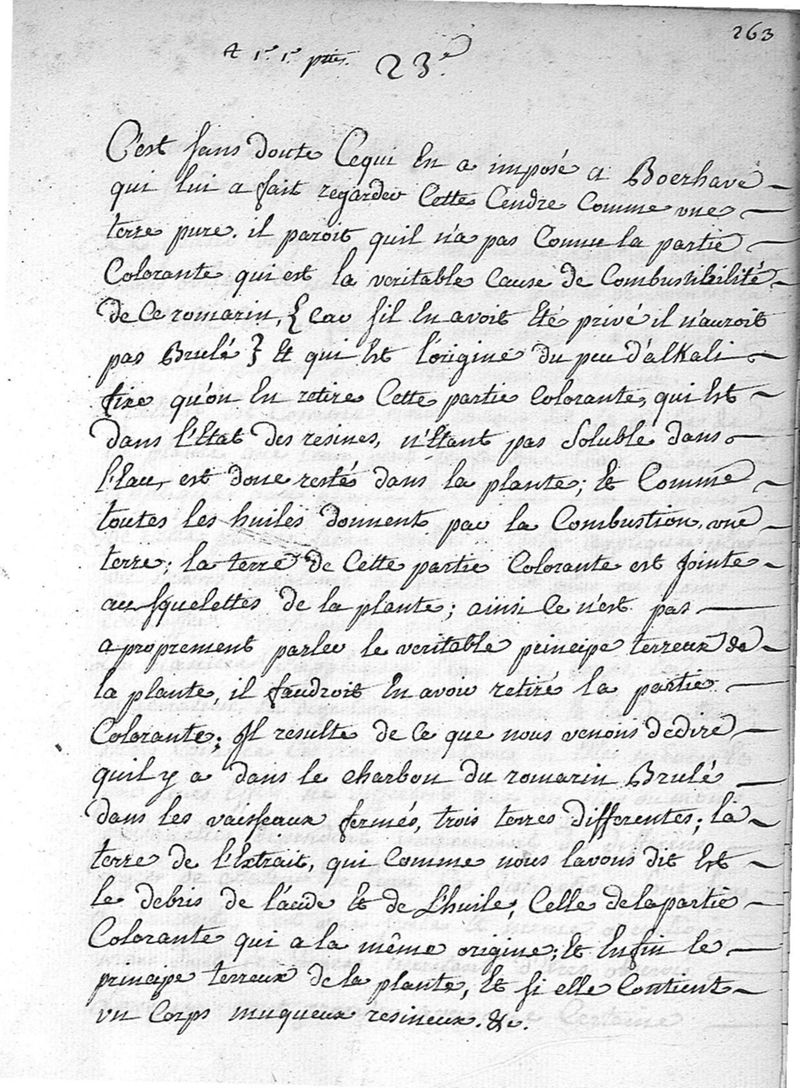 263
A 1.re 1.re ptie. 23.e
C'est sans doute Cequi En a imposé a Boerhave
qui lui a fait regarder Cette Cendre Comme vne
terre pure. il paroit quil n'a pas Connu la partie
Colorante qui est la veritable Cause de Combustibilité
de Ce romarin, { car s'il En avoit Eté privé il n'auroit
pas Brulé } Et qui Est l'origine du peu d'alkali
fixe qu'on En retire Cette partie Colorante, qui Est
dans l'Etat des resines, n'Etant pas Soluble dans
l'Eau, est donc restés dans la plante; Et Comme
toutes les huiles donnent par la Combustion vne
terre; la terre de Cette partie Colorante est Jointe
au squelettes de la plante; ainsi Ce n'est pas
a proprement parler le veritable principe terreux de
la plante, il faudroit En avoir retiré la partie
Colorante; Il resulte de Ce que nous venons dedire
quil y a dans le charbon du romarin Brulé
dans les vaisseaux fermés, trois terres differentes; la
terre de l'Extrait, qui Comme nous lavons dit Est
le debris de l'acide Et de L'huile; Celle delapartie
Colorante qui a la même origine; Et Enfin le
principe terreux de la plante, Et si elle Contient
vn Corps muqueux resineux. &c.